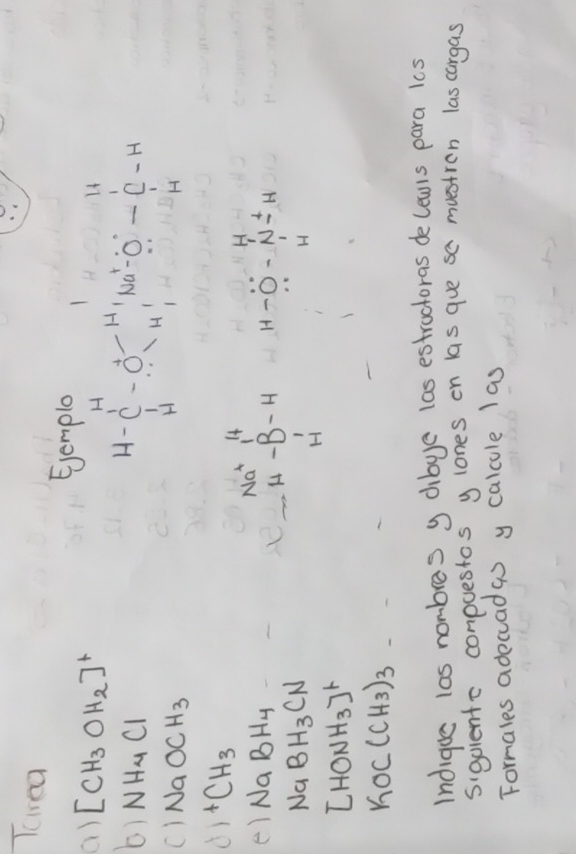 Tarea
a) [CH3 OH2]+
b) NH4 Cl
c) NaOCH3
d) +CH3
e) Na BH4
Na BH3 CN
[HONH3]+
KOC(CH3)3
Ejemplo
H H
H-C-O+ H Na+ :O - C-H
H H H
Na+ H
H-B-H H-O-N+-H
H H
Indique los nombres y dibuje las estructoras de lewis para los
siguiente compuestos y iones en las que se muestren las cargas
Formales adecuadas y calcule las